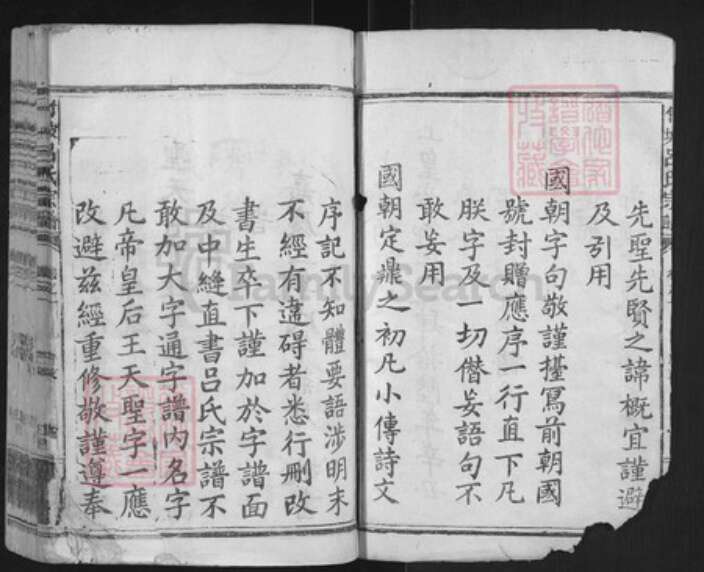 先聖先賢之諱概宜謹避
及引用
國朝字句敬謹擡寫前朝國
號封贈應序一行直下凡
朕字及一切僭妄語句不
敢妄用
國朝定鼎之初凡小傳詩文
序記不知體要語涉明末
不經有違碍者悉行刪改
書生卒下謹加於字譜面
及中縫直書呂氏宗譜不
敢加大字通字譜內名字
凡帝皇后王天聖字一應
改避茲經重修敬謹遵奉
FamilySearch